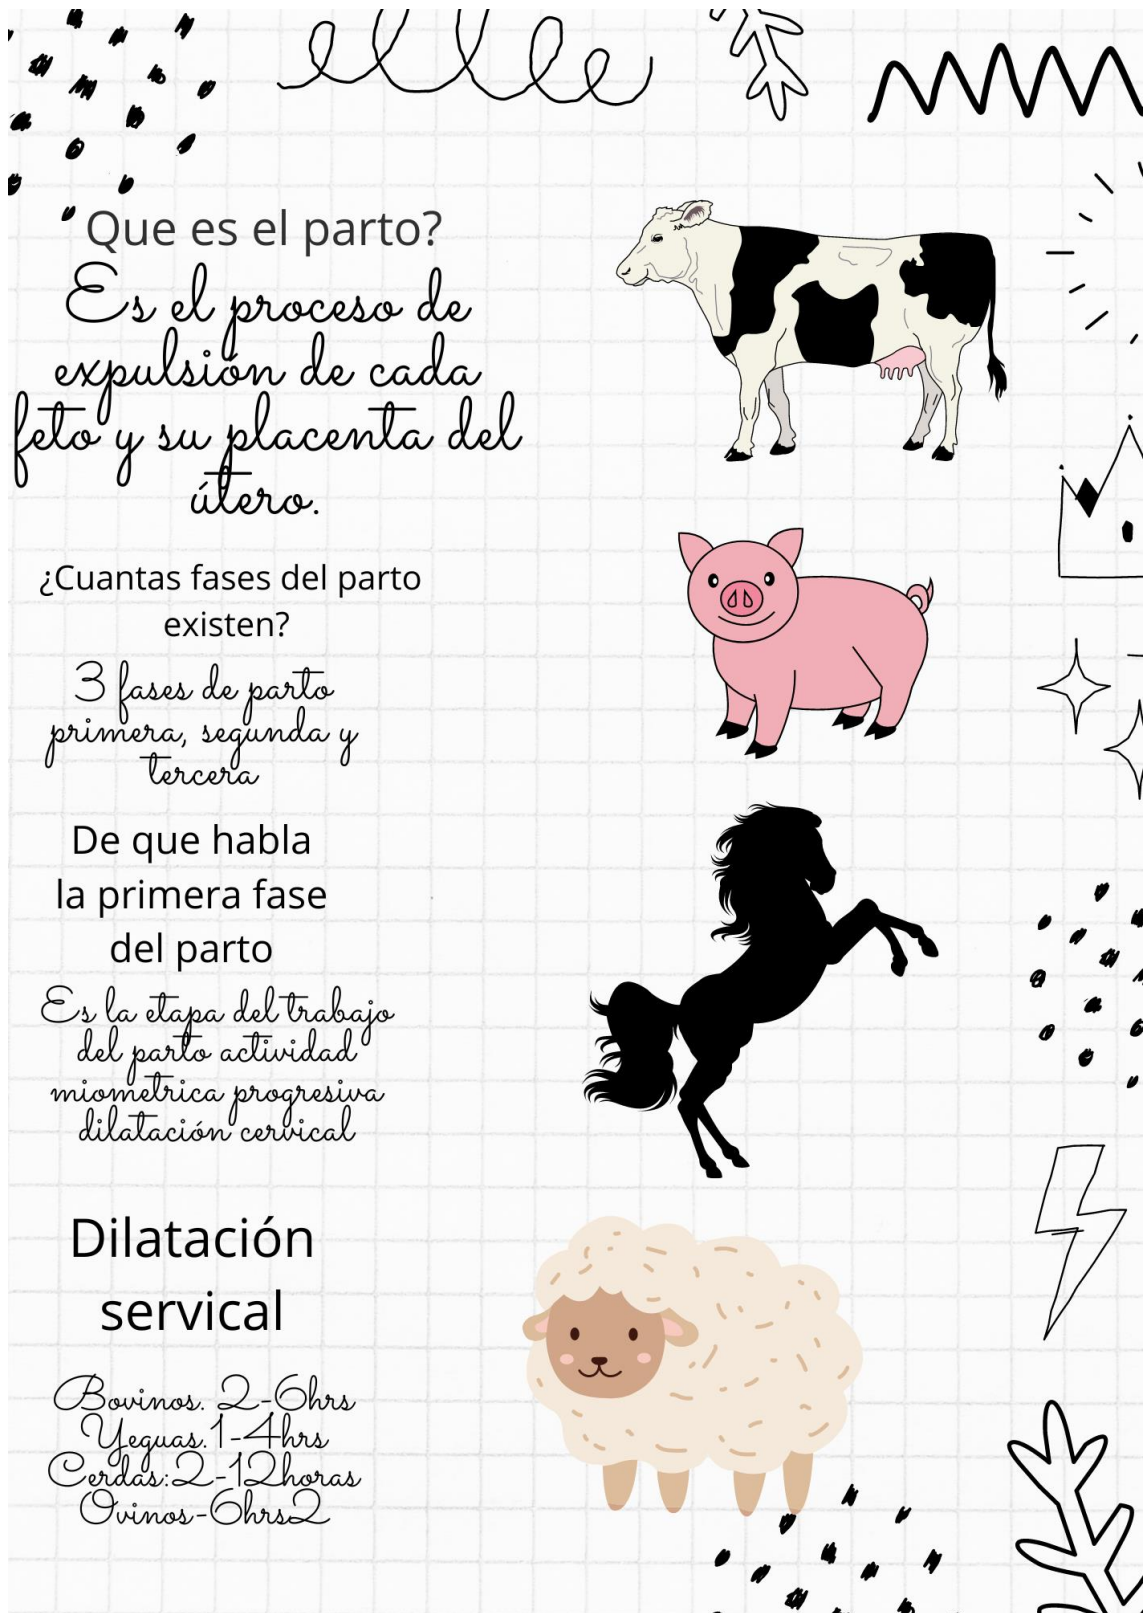 Que es el parto?
Es el proceso de
expulsión de cada
feto y su placenta del
útero.
¿Cuantas fases del parto
existen?
3 fases de parto
primera, segunda y
tercera
De que habla
la primera fase
del parto
Es la etapa del trabajo
del parto actividad
miometrica progresiva
dilatación cervical
Dilatación
servical
Bovinos. 2-6hrs
Yeguas.1-4hrs
Cerdas:2-12horas
Ovinos-6hrs2